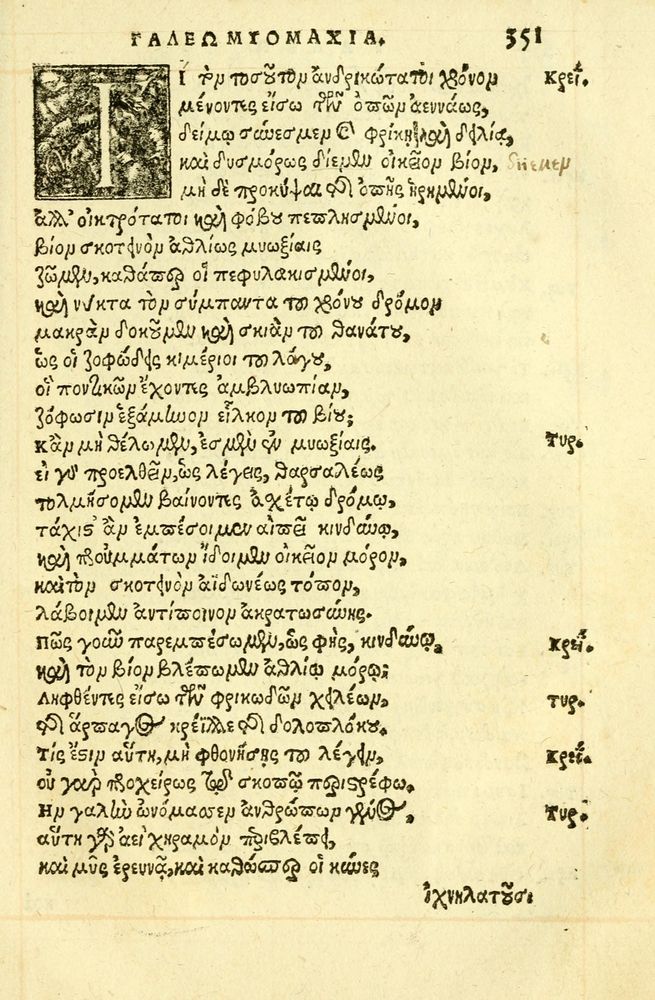 ΓΑΛΕΩΜΥΟΜΑΧΙΑ. 351
Τί τὸν τοσοῦτον ἀνδρικώτατοι χρόνον Κρεΐ.
μένοντες εἴσω τῶν ὀπῶν ἀεννάως,
δείμῳ σύνεσμεν καὶ φρίκῃ καὶ δειλίᾳ,
καὶ δυσμόρως διέμεν οἰκεῖον βίον, διῆμεν
μὴ δὲ προκύψαι τῆς ὀπῆς ᾑρημένοι,
ἀλλ' οἰκτρότατοι καὶ φόβου πεπλησμένοι,
βίον σκοτεινὸν ἀθλίως μυωξίαις
ζῶμεν, καθάπερ οἱ πεφυλακισμένοι,
καὶ νύκτα τὸν σύμπαντα τοῦ χρόνου δρόμον
μακρὰν δοκοῦμεν καὶ σκιὰν τοῦ θανάτου,
ὡς οἱ ζοφώδεις κιμέριοι τοῦ λόγου,
οἳ ποντικῶν ἔχοντες ἀμβλυωπίαν,
ζόφωσιν ἑξάμηνον εἷλκον τοῦ βίου;
Κἂν μὴ θέλωμεν, ἐσμὲν ἐν μυωξίαις. Τυρ.
εἰ γὰρ προελθεῖν, ὡς λέγεις, θαρσαλέως
τολμήσομεν βαίνοντες ἀχέτῳ δρόμῳ,
τάχιστ' ἂν ἐμπέσοιμεν αἰπεῖ κινδύνῳ,
καὶ πρὸ ὀμμάτων ἴδοιμεν οἰκεῖον μόρον,
καὶ τὸν σκοτεινὸν ἀϊδωνέως τόπον,
λάβοιμεν ἀντίποινον ἀκρατοσύνης.
Πῶς γοῦν παρεμπέσωμεν, ὡς φῂς, κινδύνῳ, Κρεΐ.
καὶ τὸν βίον βλέπωμεν ἀθλίῳ μόρῳ;
Ληφθέντες εἴσω τῶν φρικωδῶν χειλέων, Τυρ.
τῆς ἅρπαγος κρέϊλλε τῆς δολοπλόκου.
Τίς ἔστιν αὕτη, μὴ φθονήσῃς τοῦ λέγειν, Κρεΐ.
οὐ γὰρ προχείρως τῷ σκοπῷ περιστρέφω.
Ἣν γαλῆν ὠνόμασεν ἀνθρώπων γένος, Τυρ.
αὕτη γὰρ ἀεὶ χηραμὸν περιβλέπει,
καὶ μῦς ἐρευνᾷ, καὶ καθάπερ οἱ κύνες
ἰχνηλατοῦσι